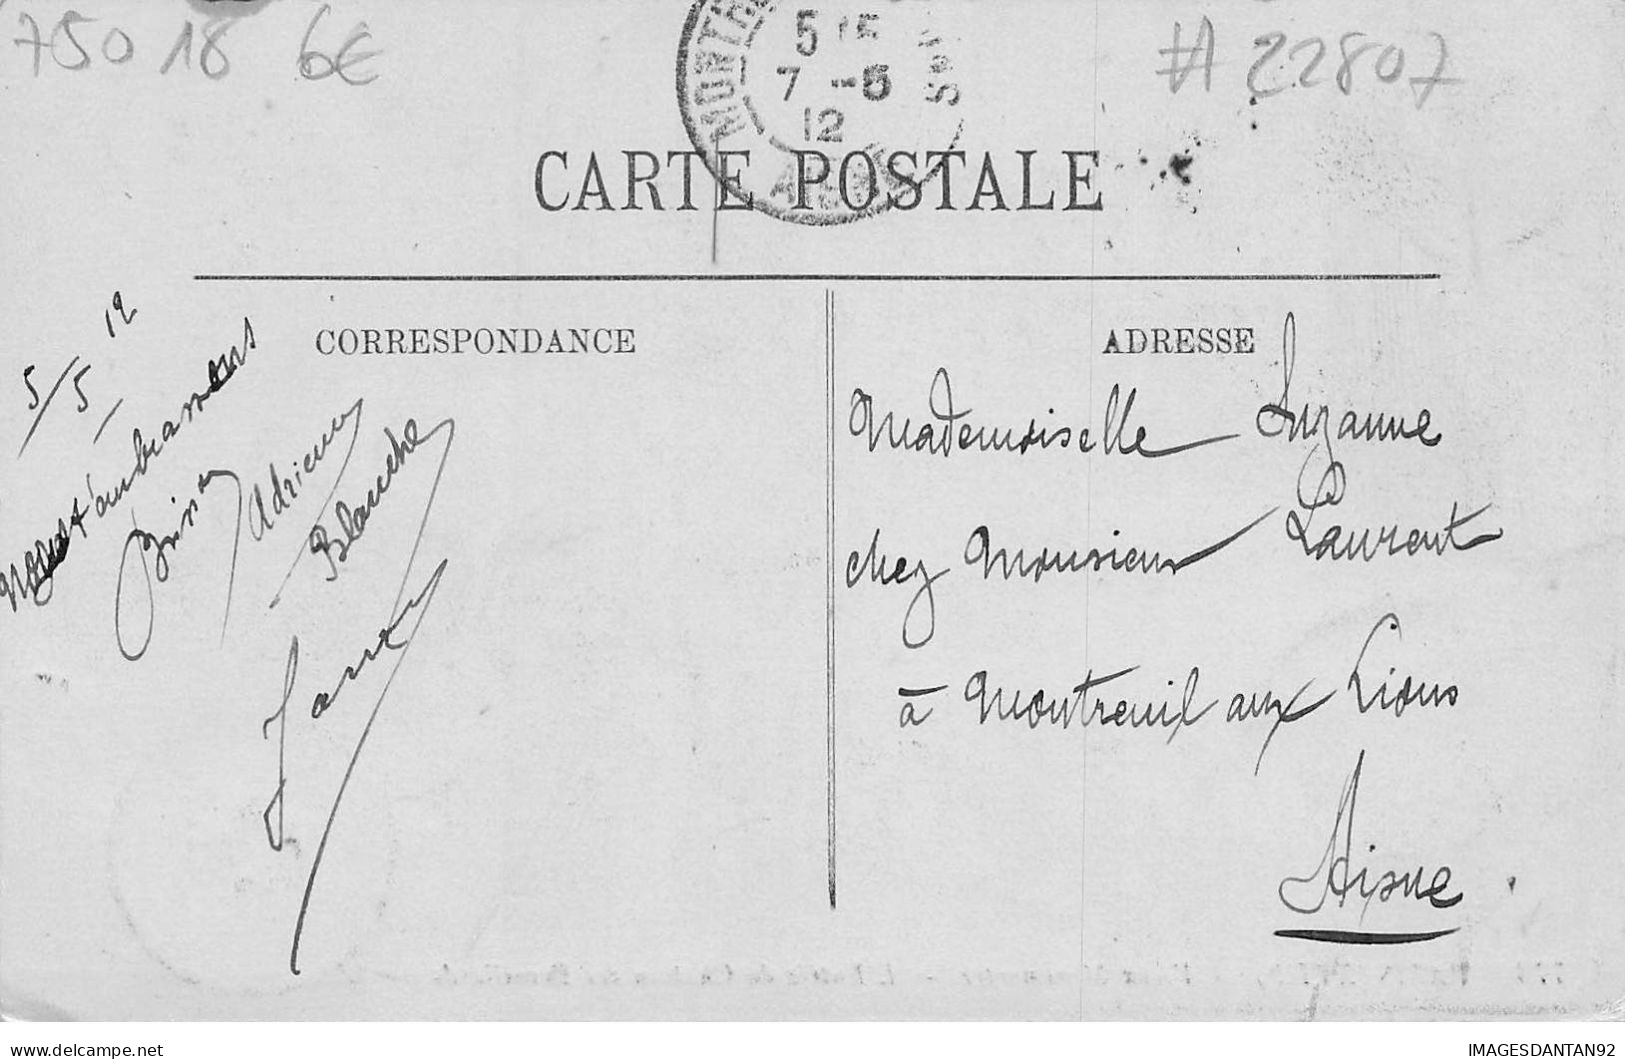 75018 6€
# 22807
MONTR
5 15
7 -5
12
CARTE POSTALE
CORRESPONDANCE
ADRESSE
5/5 12
Nous t'embrassons
Adrienne
Blanche
Mademoiselle Suzanne
chez Monsieur Laurent
à Montreuil aux Lions
Aisne
delcampe.net
IMAGESDANTAN92